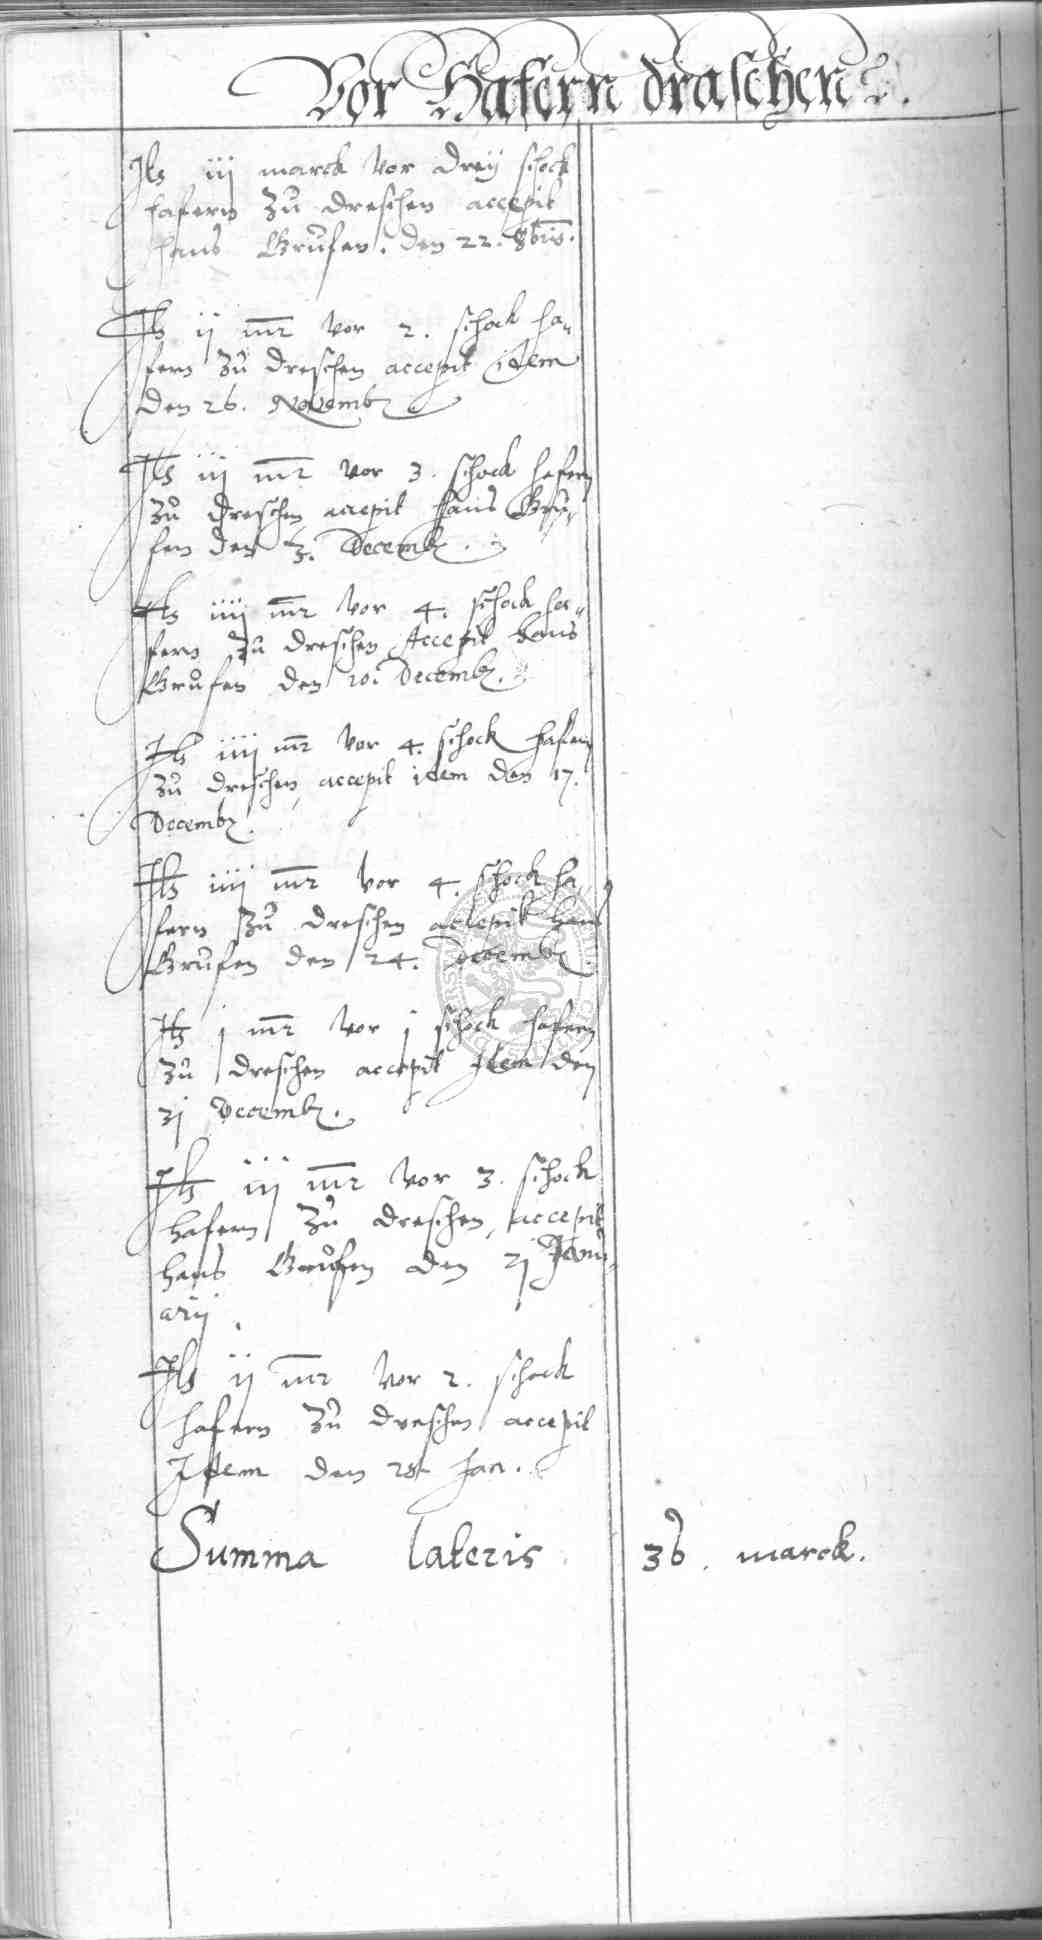 Vor Hafern draschen
Itz iij marck vor dreÿ schock
hafern zu dreschen accepit
hans Grusen. den 22. 8bris.
Itz ij mr vor 2. schock ha„
fern zu dreschen accepit idem
den 26. Novemb
Itz iij mr vor 3. schock hafern
zu dreschen accepit hans Gru„
sen den 3. Decemb.
Itz iiij mr vor 4. schock ha„
fern zu dreschen Accepit hans
Grusen den 10. Decemb.
Itz iiij mr vor 4. schock hafern
zu dreschen accepit idem den 17.
Decemb.
Itz iiij mr vor 4. schock ha„
fern zu dreschen accepit hans
Grusen den 24. Decemb.
Itz j mr vor j schock hafern
zu dreschen accepit Idem den
31 Decemb.
Itz iij mr vor 3. schock
hafern zu dreschen accepit
hans Grusen den 21 Janu„
arij.
Itz ij mr vor 2. schock
hafern zu dreschen accepit
Idem den 28 Jan.
Summa lateris 36. marck.